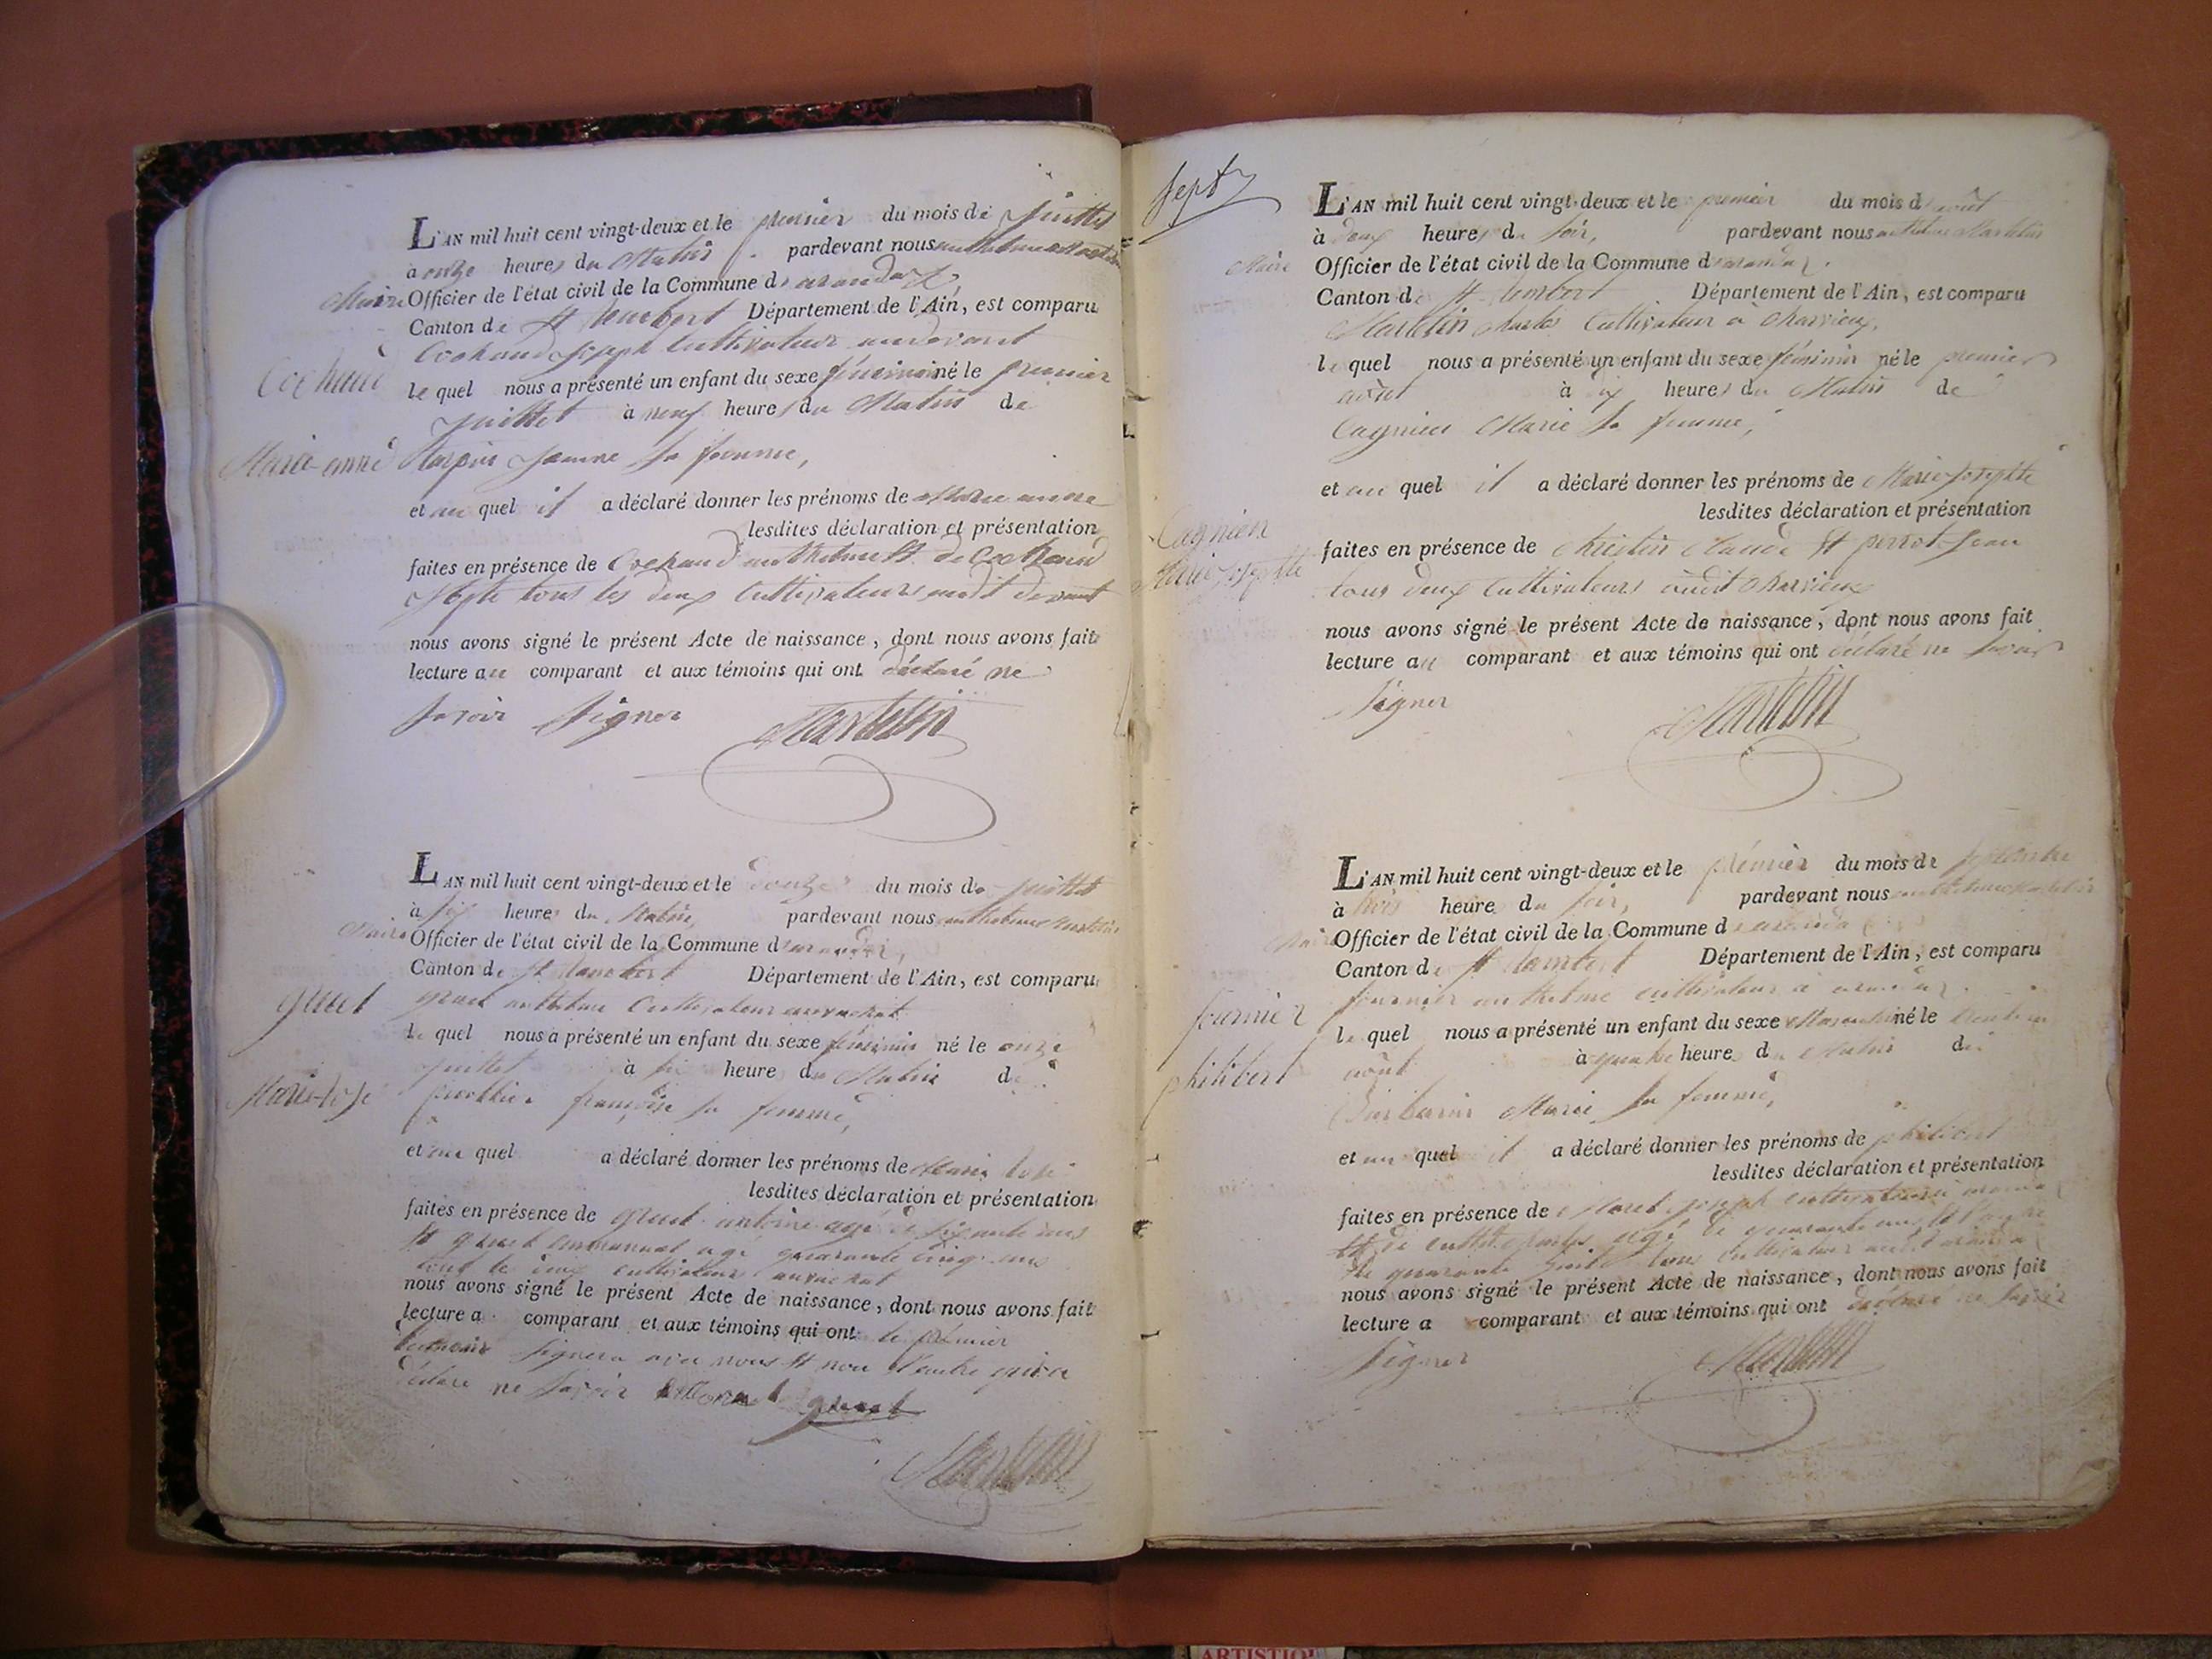 L'AN mil huit cent vingt-deux et le premier du mois de Juillet
à onze heures du Matin pardevant nous anthelme Martelin
Maire Officier de l'état civil de la Commune d'arandas,
Canton de St Rambert Département de l'Ain, est comparu
Cochaud Joseph Cultivateur
Cochaud
le quel nous a présenté un enfant du sexe féminin né le premier
Juillet à neuf heures du Matin de
Marie-anne
Jeanne Sa femme,
et au quel il a déclaré donner les prénoms de Marie anne
lesdites déclaration et présentation
faites en présence de Cochaud anthelme et de Cochaud
tous les deux Cultivateurs audit
nous avons signé le présent Acte de naissance, dont nous avons fait
lecture au comparant et aux témoins qui ont déclaré ne
Savoir Signer Martelin
L'AN mil huit cent vingt-deux et le douze du mois de Juillet
à six heures du Matin, pardevant nous anthelme Martelin
Maire Officier de l'état civil de la Commune d'arandas,
Canton de St Rambert Département de l'Ain, est comparu
gruet anthelme Cultivateur
gruet
le quel nous a présenté un enfant du sexe féminin né le onze
juillet à six heures du Matin de
Marie-rose
françoise sa femme,
et au quel a déclaré donner les prénoms de Marie rose
lesdites déclaration et présentation
faites en présence de gruet antoine agé de soixante ans
et gruet emmanuel agé quarante cinq ans
tous les deux cultivateurs
nous avons signé le présent Acte de naissance, dont nous avons fait
lecture a comparant et aux témoins qui ont le premier
témoin Signera avec nous et non l'autre qui a
déclaré ne Savoir gruet
Martelin
Sept
L'AN mil huit cent vingt-deux et le premier du mois d'août
à deux heures du Soir, pardevant nous anthelme Martelin
Maire Officier de l'état civil de la Commune d'arandas.
Canton de St Rambert Département de l'Ain, est comparu
Martelin Charles Cultivateur à Charvieux,
le quel nous a présenté un enfant du sexe féminin né le premier
août à dix heures du Matin de
Cagnien Marie Sa femme,
et au quel il a déclaré donner les prénoms de Marie Josephte
lesdites déclaration et présentation
Cagnien
Marie Josephte
faites en présence de Christin Claude et perrot Jean
tous deux Cultivateurs audit Charvieux
nous avons signé le présent Acte de naissance, dont nous avons fait
lecture au comparant et aux témoins qui ont déclaré ne Savoir
Signer Martelin
L'AN mil huit cent vingt-deux et le prémier du mois de Septembre
à trois heure du Soir, pardevant nous anthelme Martelin
Maire Officier de l'état civil de la Commune d'arandas
Canton de St Rambert Département de l'Ain, est comparu
fournier anthelme cultivateur à arandas.
fournier
le quel nous a présenté un enfant du sexe Masculin né le
août à quatre heure du Matin de
philibert
Barbarin Marie Sa femme,
et au quel il a déclaré donner les prénoms de philibert
lesdites déclaration et présentation
faites en présence de Joseph cultivateur à arandas
agé de quarante ans
de quarante huit tous Cultivateurs audit arandas
nous avons signé le présent Acte de naissance, dont nous avons fait
lecture a comparant et aux témoins qui ont déclaré ne Savoir
Signer Martelin
ARTISTIQ